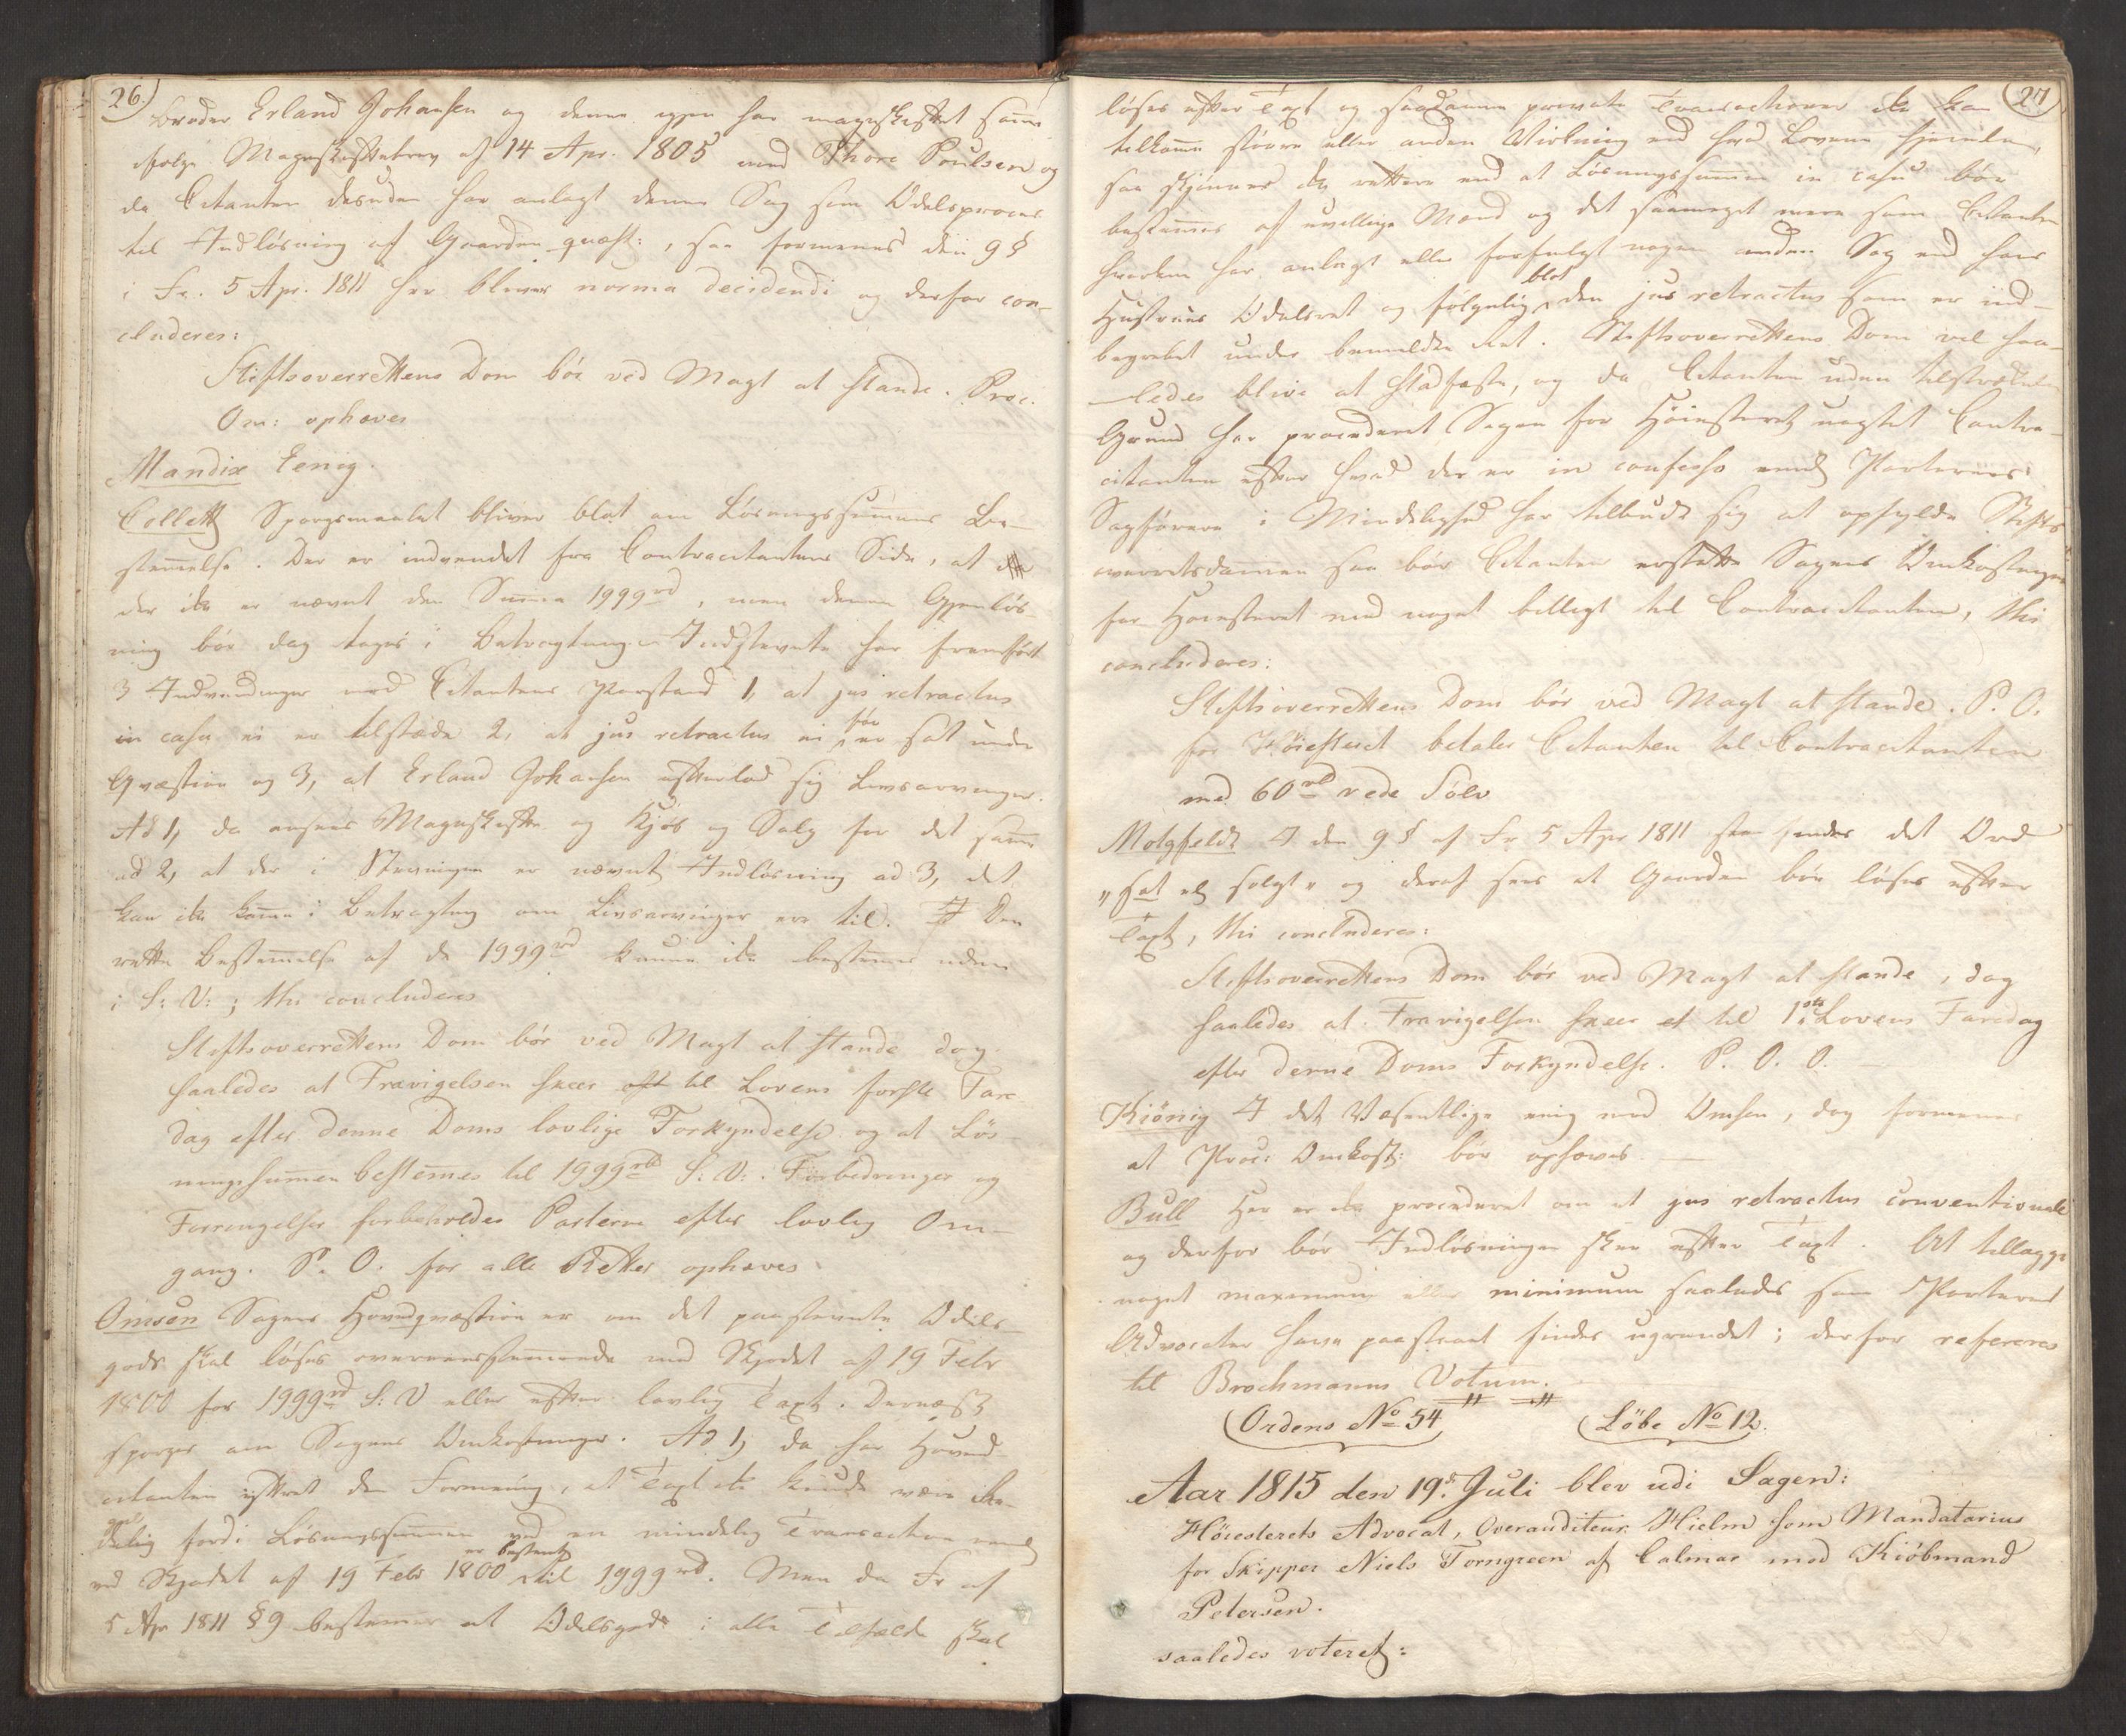 26.)
Broder Erland Johansen og denne igjen har mageskiftet samme
ifølge Mageskiftebrev af 14 Apr. 1805 med Thore Poulsen og
da Citanten desuden har anlagt denne Sag som Odelsproces
til Indløsning af Gaarden quæst:, saa formenes den 9 §
i Fr. 5 Apr. 1811 her bliver norma decidendi og derfor con-
cluderes:
Stiftsoverrettens Dom bør ved Magt at stande. Proc.
Om: ophæves
Mandix Eenig.
Collett Spørgsmaalet bliver blot om Løsningssummens Be-
stemmelse. Der er indvendt fra Contracitantens Side, at
der ikke er nævnt den Summa 1999 rd, men denne Gjenløs-
ning bør dog tages i Betragtning. Indstevnte har fremført
3 Indvendinger mod Citantens Paastand 1, at jus retractus
in casu ei er tilstæde 2, at jus retractus ei før er sat under
Qvæstion og 3, at Erland Johansen efterlod sig Livsarvinger.
Ad 1, da ansees Mageskifte og Kjøb og Salg for det samme
ad 2, at der i Stevningen er nævnt Indløsning ad 3, det
kan ikke komme i Betragtning om Livsarvinger ere til. Den
rette Bestemmelse af de 1999 rd kunne ikke bestemmes uden
i S: V:; thi concluderes
Stiftsoverrettens Dom bør ved Magt at stande dog
saaledes at Fravigelsen skeer til Lovens første Fare
dag efter denne Doms lovlige Forkyndelse og at Løs-
ningssummen bestemes til 1999 rd S: V:. Forbedringer og
Forringelser forbeholdes Parterne efter lovlig Om-
gang. P. O. for alle Retter ophæves.
Omsen Sagens Hovedqvæstion er om det paastevnte Odels-
gods skal løses overeensstemmende med Skjødet af 19 Febr
1800 for 1999 rd S: V eller efter lovlig Taxt. Dernæst
spørges om Sagens Omkostninger. Ad 1, da har Hoved-
citanten yttret den Formening, at Taxt ei kunde være
fordi Løsningssummen ved en mindelig Transaction
ved Skjødet af 19 Febr 1800 er bestemt til 1999 rd. Men da Fr af
5 Apr 1811 § 9 bestemmer at Odelsgods i alle Tilfælde skal
27
løses efter Taxt og saadanne private Transactioner ikke kan
tilkomme større eller anden Virkning end hvad Lovene hjemle,
saa skjønnes ikke rettere end at Løsningssummen in casu bør
bestemmes af uvillige Mænd og det saameget mere som Citanten
hverken har anlagt eller forfulgt nogen anden Sag end hans
Hustrues Odelsret og følgelig blot den jus retractus som er ind-
begrebet under bemeldte Ret. Stiftsoverrettens Dom vil saa-
ledes blive at stadfæste, og da Citanten uden tilstrækkelig
Grund har procederet Sagen for Høiesteret uagtet Contra-
citanten efter hvad der er in confesso imell. Parternes
Sagførere i Mindelighed har tilbudt sig at opfylde Stifts
overretsdommen saa bør Citanten erstatte Sagens Omkostninger
for Høiesteret med noget billigt til Contracitanten, thi
concluderes:
Stiftsoverrettens Dom bør ved Magt at stande. P. O.
for Høiesteret betaler Citanten til Contracitanten
med 60 rd rede Sølv
Motzfeldt I den 9 § af Fr 5 Apr 1811 findes det Ord
"sat el solgt" og deraf sees at Gaarden bør løses efter
Taxt, thi concluderes:
Stiftsoverrettens Dom bør ved Magt at stande, dog
saaledes at Fravigelsen skeer til 1ste Lovens Faredag
efter denne Doms Forkyndelse. P. O. O.
Kiönig I det Væsentlige enig med Omsen, dog formenes
at Proc: Omkost: bør ophæves
Bull Her er ikke procederet om et jus retractus conventionale
og derfor bør Indløsningen skee efter Taxt. At tillægge
noget maximum eller minimum saaledes som Parternes
Advocater have paastaaet findes ugrundet; derfor refereres
til Brochmanns Votum.
Ordens No 54 Løbe No 12.
Aar 1815 den 19de Juli blev udi Sagen:
Höiesterets Advocat, Overauditeur Hielm som Mandatarius
for Skipper Niels Torngreen af Calmar mod Kiöbmand
Petersen.
saaledes voteret: